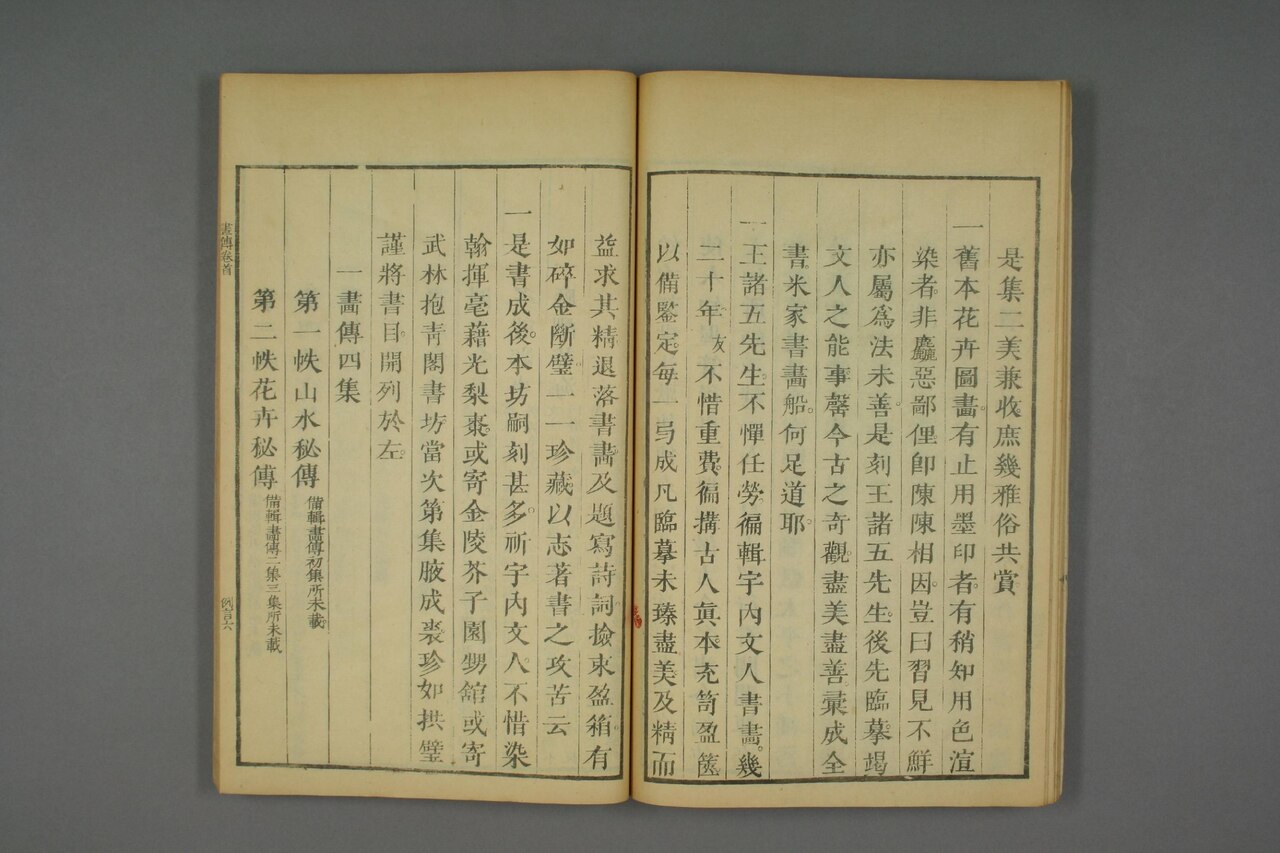 是集二美兼收庶幾雅俗共賞
一舊本花卉圖畫有止用墨印者有稍知用色渲
染者非麤惡鄙俚卽陳陳相因豈曰習見不鮮
亦屬爲法未善是刻王諸五先生後先臨摹竭
文人之能事罄今古之奇觀盡美盡善彙成全
書米家書畫船何足道耶
一王諸五先生不憚任勞徧輯宇內文人書畫幾
二十年友不惜重費徧搆古人眞本充笥盈篋
以備鑒定每一弓成凡臨摹未臻盡美及精而
益求其精退落書畫及題寫詩詞撿束盈箱有
如碎金斷璧一一珍藏以志著書之攻苦云
一是書成後本坊嗣刻甚多祈宇內文人不惜染
翰揮毫藉光梨棗或寄金陵芥子園甥舘或寄
武林抱靑閣書坊當次第集腋成裘珍如拱璧
謹將書目開列於左
一畫傳四集
第一帙山水秘傳 備輯畫傳初集所未載
第二帙花卉秘傳 備輯畫傳二集三集所未載
畫傳卷首
例言六